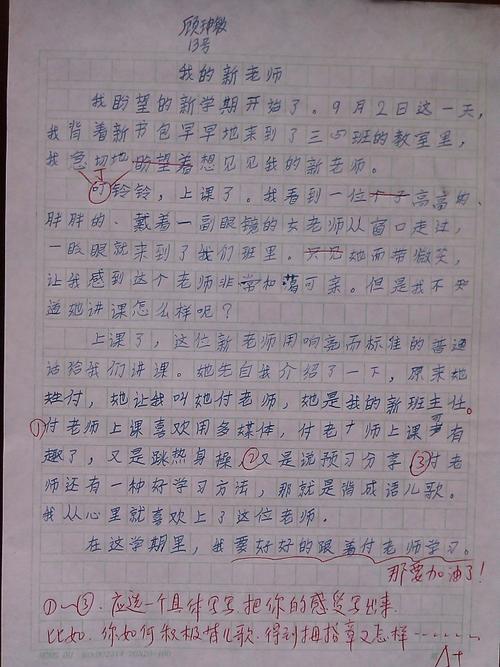 顾珅敏
13号
我的新老师
我盼望的新学期开始了。9月2日这一天,
我背着新书包早早地来到了三⑤班的教室里,
我急切地盼望着想见见我的新老师。
叮铃铃,上课了。我看到一位个子高高的、
胖胖的、戴着一副眼镜的女老师从窗口走过,
一眨眼就来到了我们班里。只见她面带微笑,
让我感到这个老师非常和蔼可亲。但是我不知
道她讲课怎么样呢?
上课了,这位新老师用响亮而标准的普通
话给我们讲课。她先自我介绍了一下,原来她
姓付,她让我叫她付老师,她是我的新班主任。
①付老师上课喜欢用多媒体,付老师上课可有
趣了,又是跳热身操,②又是说预习分享,③付老
师还有一种好学习方法,那就是背成语儿歌。
我从心里就喜欢上了这位老师。
在这学期里,我要好好的跟着付老师学习。
那要加油了!
①~③.应选一个具体写写,把你的感受写出来.
比如.你如何积极背儿歌.得到拇指章又怎样……
A+